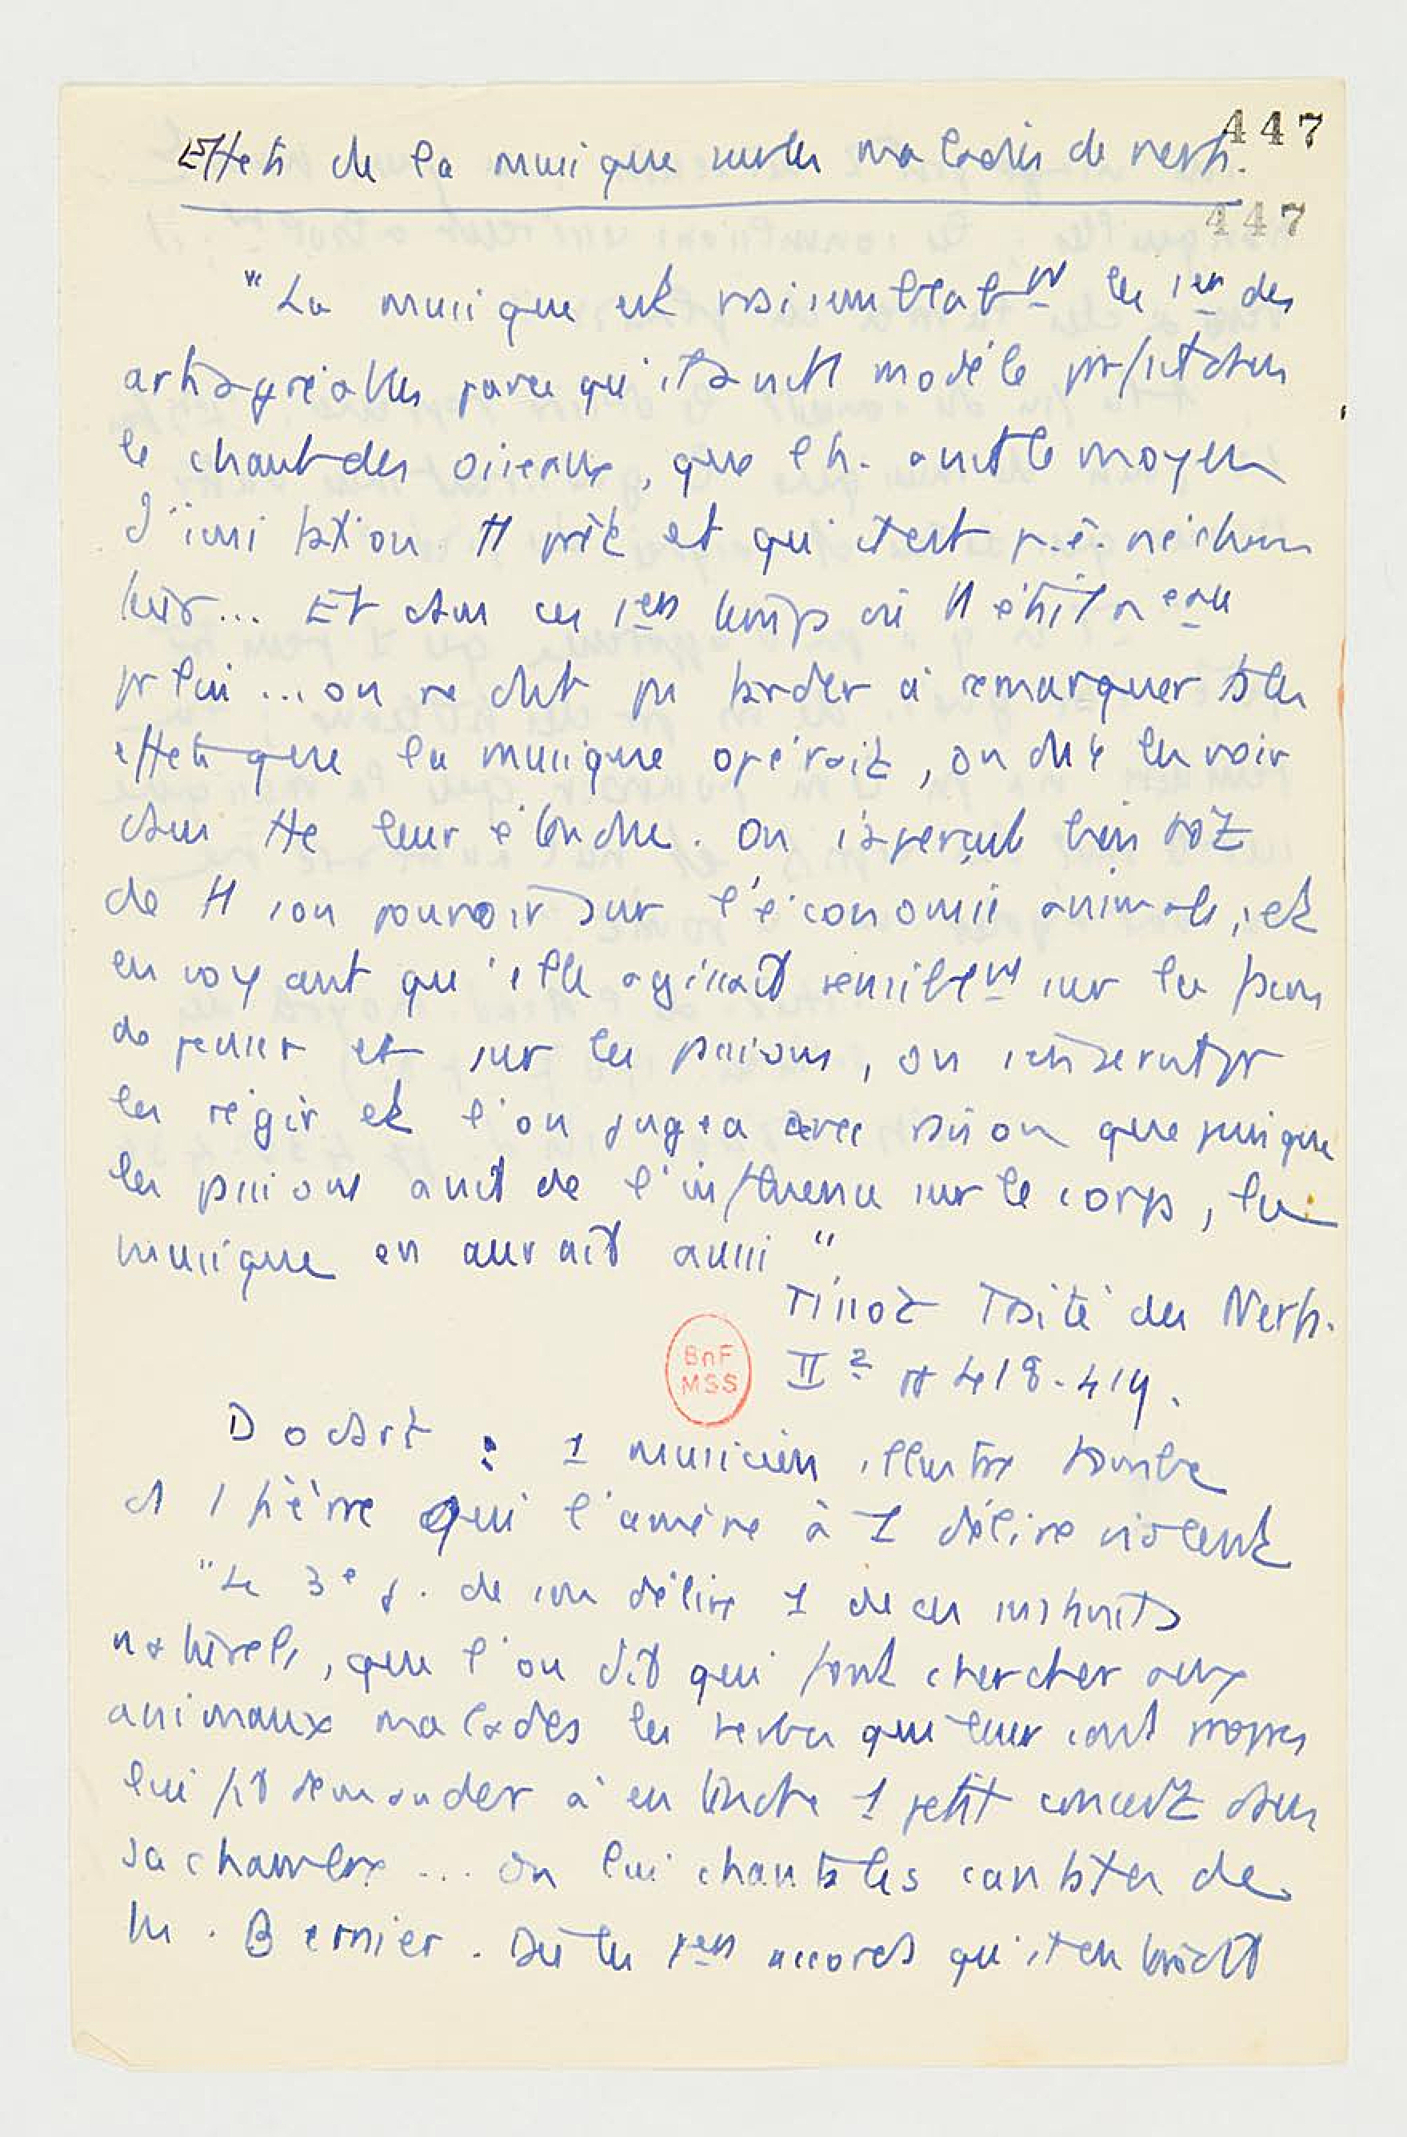 447
Effets de la musique sur les maladies de nerfs.
447
"La musique est vraisemblabt le 1er des
arts agréables parce qu'il avait modèle parfait dans
le chant des oiseaux, que l'h. avait le moyen
d'imitation tt prêt et qu'il est p.ê. né chan
teur... Et dans ces 1ers temps où tt était nouveau
pr lui... on ne dut pas tarder à remarquer ts les
effets que la musique opérait, on dut les voir
dans tte leur étendue. On s'aperçut bien tôt
de tt son pouvoir sur l'économie animale, et
en voyant qu'elle agissait sensiblemt sur la façon
de penser et sur les passions, on s'en servit pr
les régir et l'on jugea avec raison que puisque
les passions avait de l'influence sur le corps, la
musique en aurait aussi "
Tissot Traité des Nerfs.
II 2 pp 418-419.
Dodart : 1 musicien illustre tombe
ds 1 fièvre qui l'amène à 1 délire violent
"Le 3e j. de son délire 1 de ces instincts
naturels, que l'on dit qui font chercher aux
animaux malades les herbes qui leur sont propres
lui fit demander à entendre 1 petit concert dans
sa chambre ... On lui chanta les cantates de
M. Bernier. Dès les 1ers accords qu'il entendit
BnF
MSS